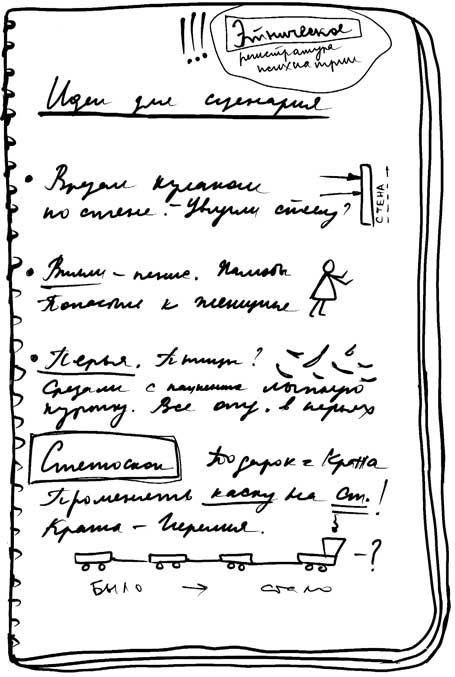 !!! Этническое
регистратура
психиатрии
Идеи для сценария
• Врезал кулаком
по стене. – Увидели стену?
СТЕНА
• Вилли – пение. Жалобы
Попастые к женщине
• Перья. Птицы?
Срезали с пациента лыжную
куртку. Все опу. в перьях
Стетоскоп Подарок = Кража
Променять каску на ст.!
Кража – Иеремия.
– ?
Было → стало